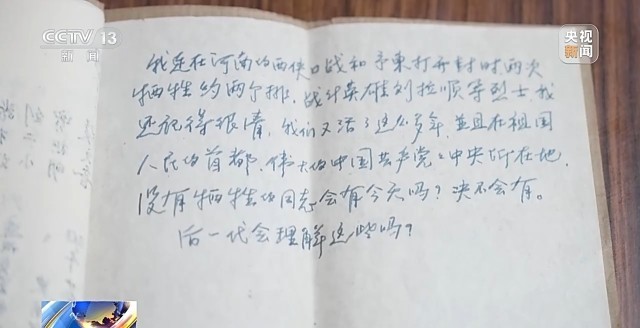 CCTV 13
新闻
央视
新闻
我是在河南的西峡口战和予東打开封时两次
牺牲的两个排,战斗英雄刘拉顺等烈士,我
还记得很清,我们又活了这么多年,並且在祖国
人民的首都,伟大的中国共产党、中央所在地,
没有牺牲的同志会有今天吗?决不会有。
后一代会理解这些吗?